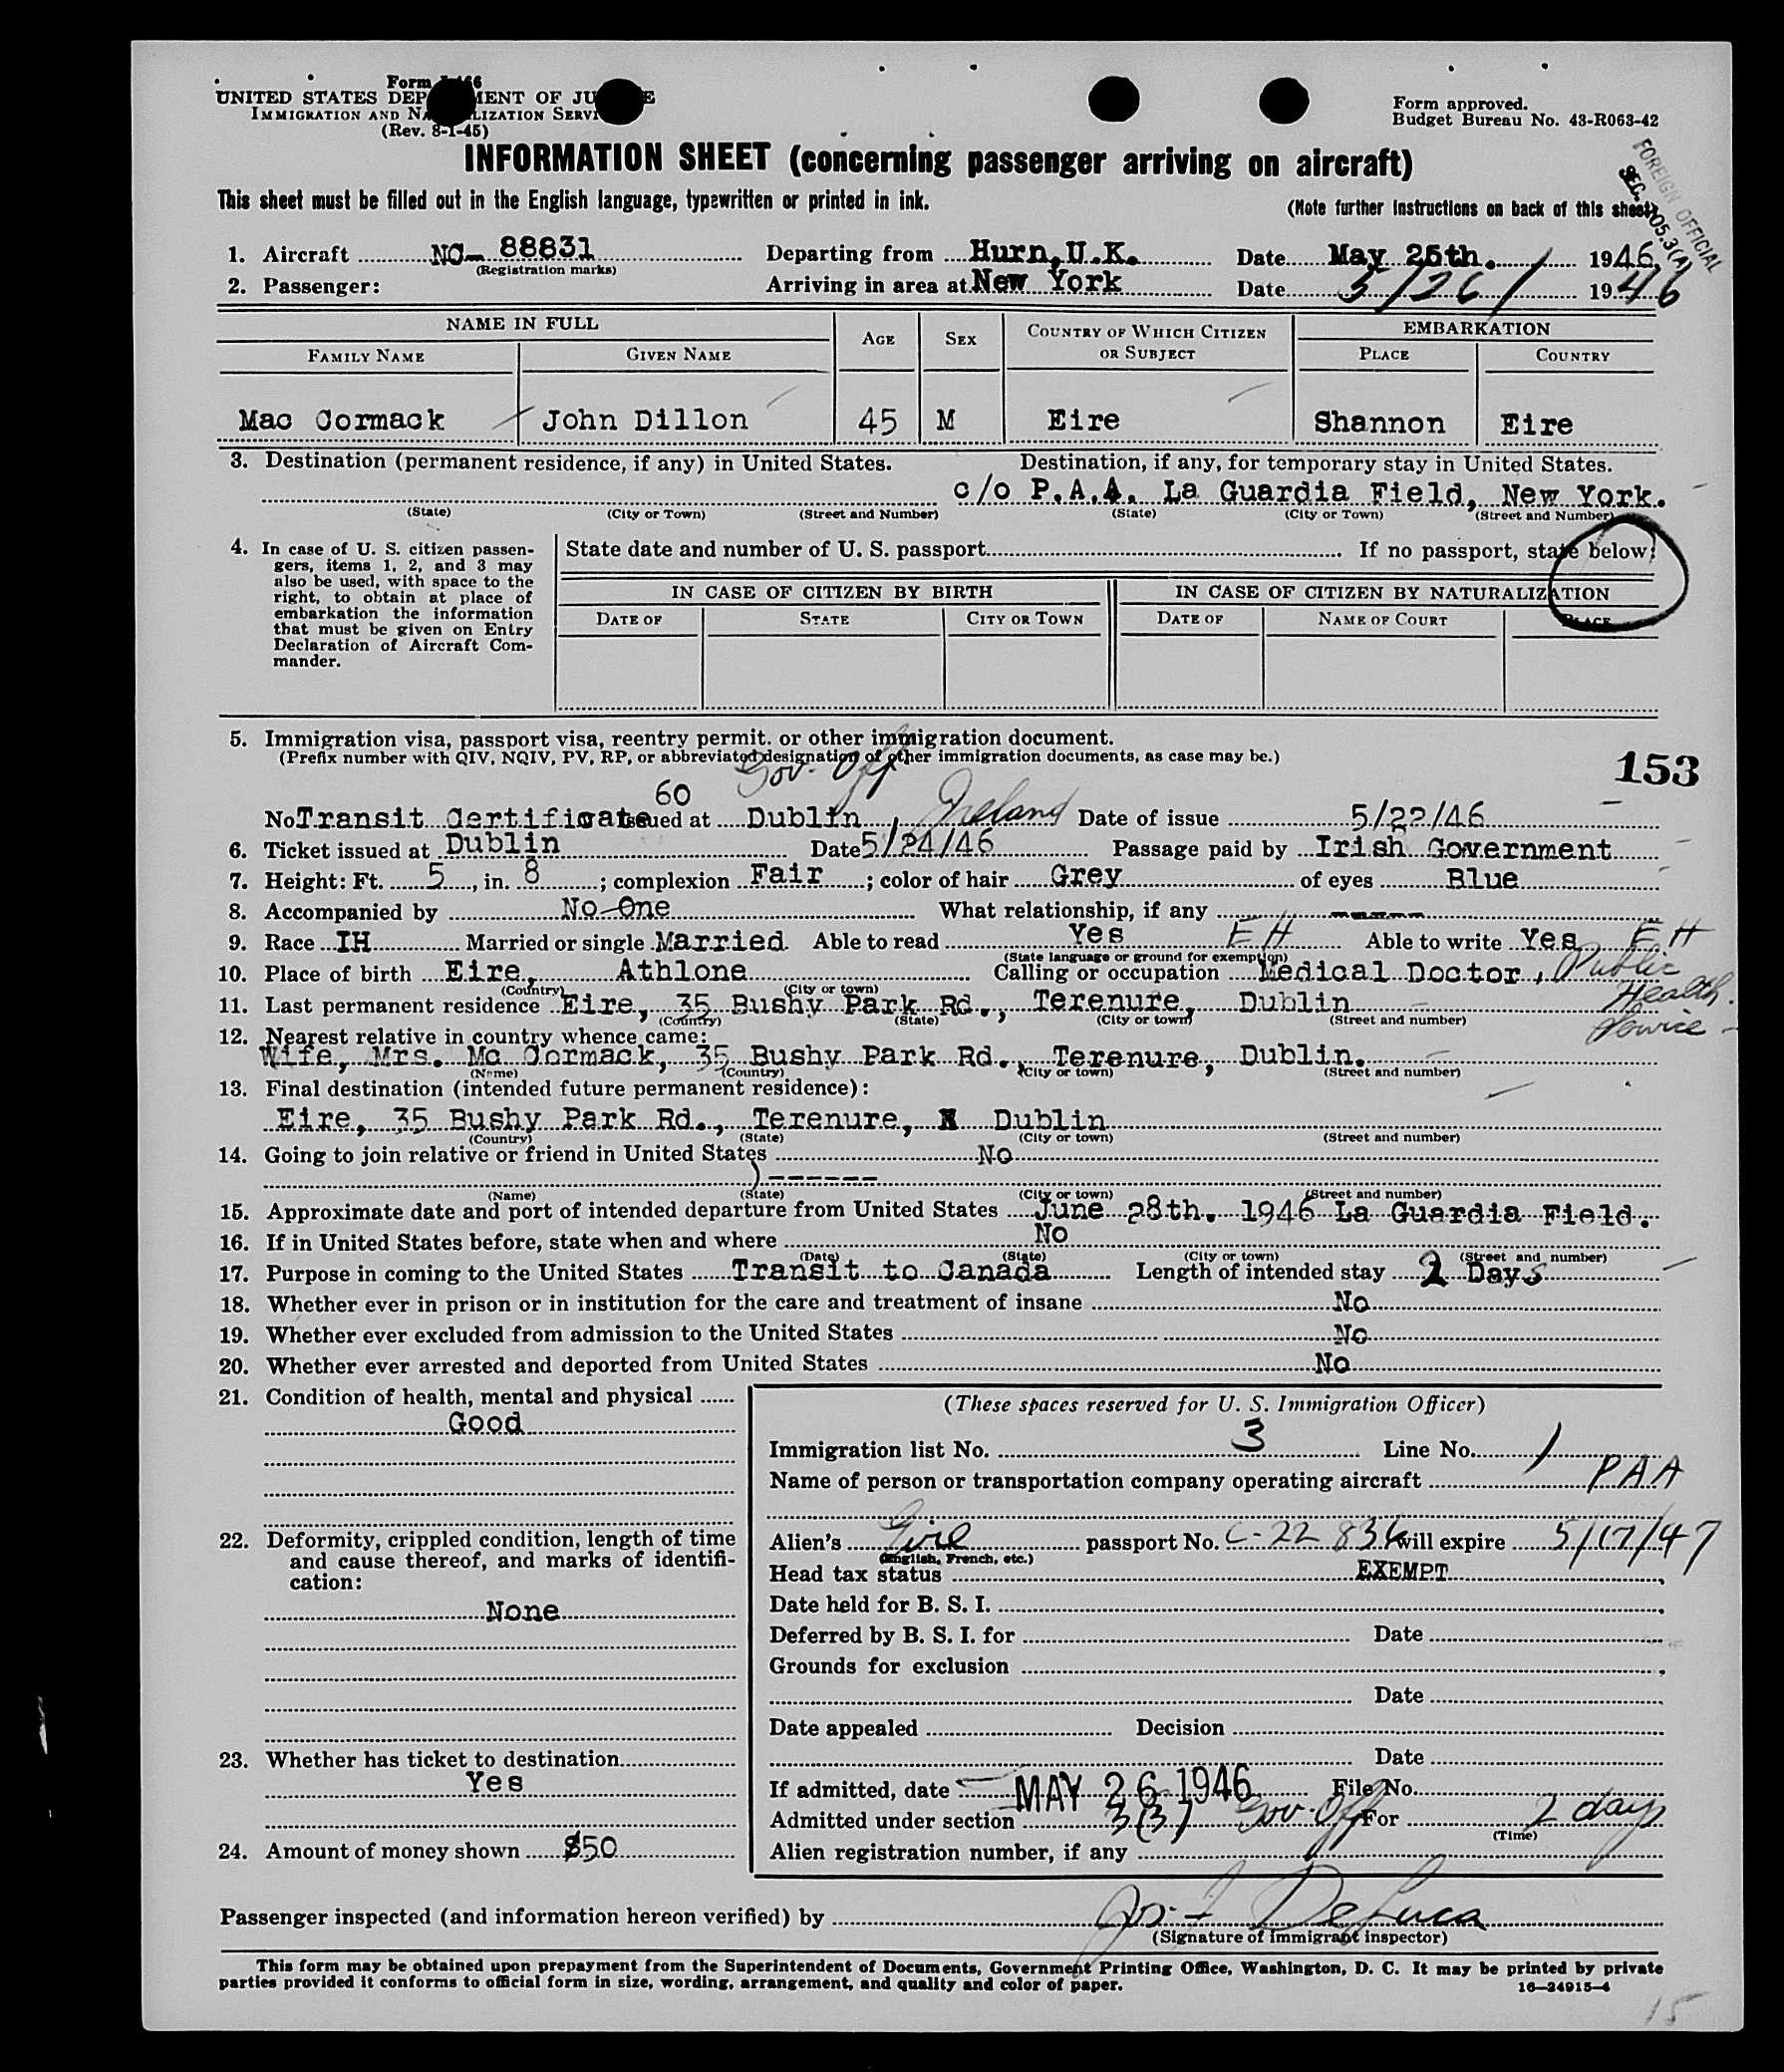 Form
UNITED STATES DEP MENT OF JU E
IMMIGRATION AND NA LIZATION SERVI
(Rev. 8-1-45)
Form approved.
Budget Bureau No. 43-R063-42
INFORMATION SHEET (concerning passenger arriving on aircraft)
FOREIGN OFFICIAL
SEC. 105.3(A)
This sheet must be filled out in the English language, typewritten or printed in ink.
(Note further instructions on back of this sheet)
1. Aircraft NC- 88831 Departing from Hurn, U.K. Date May 25th. 1946
(Registration marks)
2. Passenger: Arriving in area at New York Date 5/26/ 1946
NAME IN FULL AGE SEX COUNTRY OF WHICH CITIZEN OR SUBJECT EMBARKATION
FAMILY NAME GIVEN NAME PLACE COUNTRY
Mac Cormack John Dillon 45 M Eire Shannon Eire
3. Destination (permanent residence, if any) in United States. Destination, if any, for temporary stay in United States.
c/o P.A.A. La Guardia Field, New York.
(State) (City or Town) (Street and Number) (State) (City or Town) (Street and Number)
4. In case of U. S. citizen passen-
gers, items 1, 2, and 3 may
also be used, with space to the
right, to obtain at place of
embarkation the information
that must be given on Entry
Declaration of Aircraft Com-
mander.
State date and number of U. S. passport If no passport, state below:
IN CASE OF CITIZEN BY BIRTH IN CASE OF CITIZEN BY NATURALIZATION
DATE OF STATE CITY OR TOWN DATE OF NAME OF COURT PLACE
5. Immigration visa, passport visa, reentry permit. or other immigration document.
(Prefix number with QIV, NQIV, PV, RP, or abbreviated designation of other immigration documents, as case may be.)
153
Gov. Off
60
No Transit Certificate issued at Dublin, Ireland Date of issue 5/22/46
6. Ticket issued at Dublin Date 5/24/46 Passage paid by Irish Government
7. Height: Ft. 5, in. 8; complexion Fair; color of hair Grey of eyes Blue
8. Accompanied by No One What relationship, if any -------
9. Race IH Married or single Married Able to read Yes EH Able to write Yes EH
(State language or ground for exemption)
10. Place of birth Eire, Athlone Calling or occupation Medical Doctor, Public Health Service
(Country) (City or town)
11. Last permanent residence Eire, 35 Bushy Park Rd., Terenure, Dublin
(Country) (State) (City or town) (Street and number)
12. Nearest relative in country whence came:
Wife, Mrs. Mc Cormack, 35 Bushy Park Rd., Terenure, Dublin.
(Name) (Country) (City or town) (Street and number)
13. Final destination (intended future permanent residence):
Eire, 35 Bushy Park Rd., Terenure, Dublin
(Country) (State) (City or town) (Street and number)
14. Going to join relative or friend in United States No
------
(Name) (State) (City or town) (Street and number)
15. Approximate date and port of intended departure from United States June 28th. 1946 La Guardia Field.
16. If in United States before, state when and where No
(Date) (State) (City or town) (Street and number)
17. Purpose in coming to the United States Transit to Canada Length of intended stay 2 Days
18. Whether ever in prison or in institution for the care and treatment of insane No
19. Whether ever excluded from admission to the United States No
20. Whether ever arrested and deported from United States No
21. Condition of health, mental and physical
Good
22. Deformity, crippled condition, length of time
and cause thereof, and marks of identifi-
cation:
None
23. Whether has ticket to destination
Yes
24. Amount of money shown $50
(These spaces reserved for U. S. Immigration Officer)
Immigration list No. 3 Line No. 1
Name of person or transportation company operating aircraft PAA
Alien's Eire passport No. C-22 836 will expire 5/17/47
(English, French, etc.)
Head tax status EXEMPT
Date held for B. S. I.
Deferred by B. S. I. for Date
Grounds for exclusion
Date
Date appealed Decision
Date
If admitted, date MAY 26 1946 File No.
Admitted under section 3(3) Gov. Off For 2 days
(Time)
Alien registration number, if any
Passenger inspected (and information hereon verified) by Jos. DeLuca
(Signature of immigrant inspector)
This form may be obtained upon prepayment from the Superintendent of Documents, Government Printing Office, Washington, D. C. It may be printed by private
parties provided it conforms to official form in size, wording, arrangement, and quality and color of paper.
16-24915-4
15